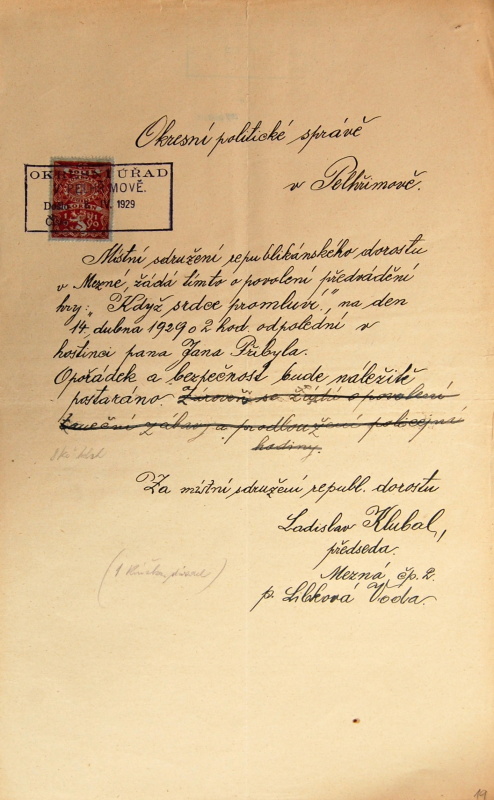 Okresní politické správě
v Pelhřimově.
OKRESNÍ ÚŘAD
V PELHŘIMOVĚ.
IV. 1929
Místní sdružení republikánského dorostu
v Mezné, žádá tímto o povolení předvádění
hry: „Když srdce promluví,” na den
14. dubna 1929 o 2 hod. odpolední v
hostinci pana Jana Přibyla.
O pořádek a bezpečnost bude náležitě
postaráno. Zároveň se žádá o povolení
taneční zábavy a prodloužení policejní
hodiny.
Za místní sdružení republ. dorostu
Ladislav Klubal,
předseda.
Mezná, čp. 2.
p. Libková Voda.
19